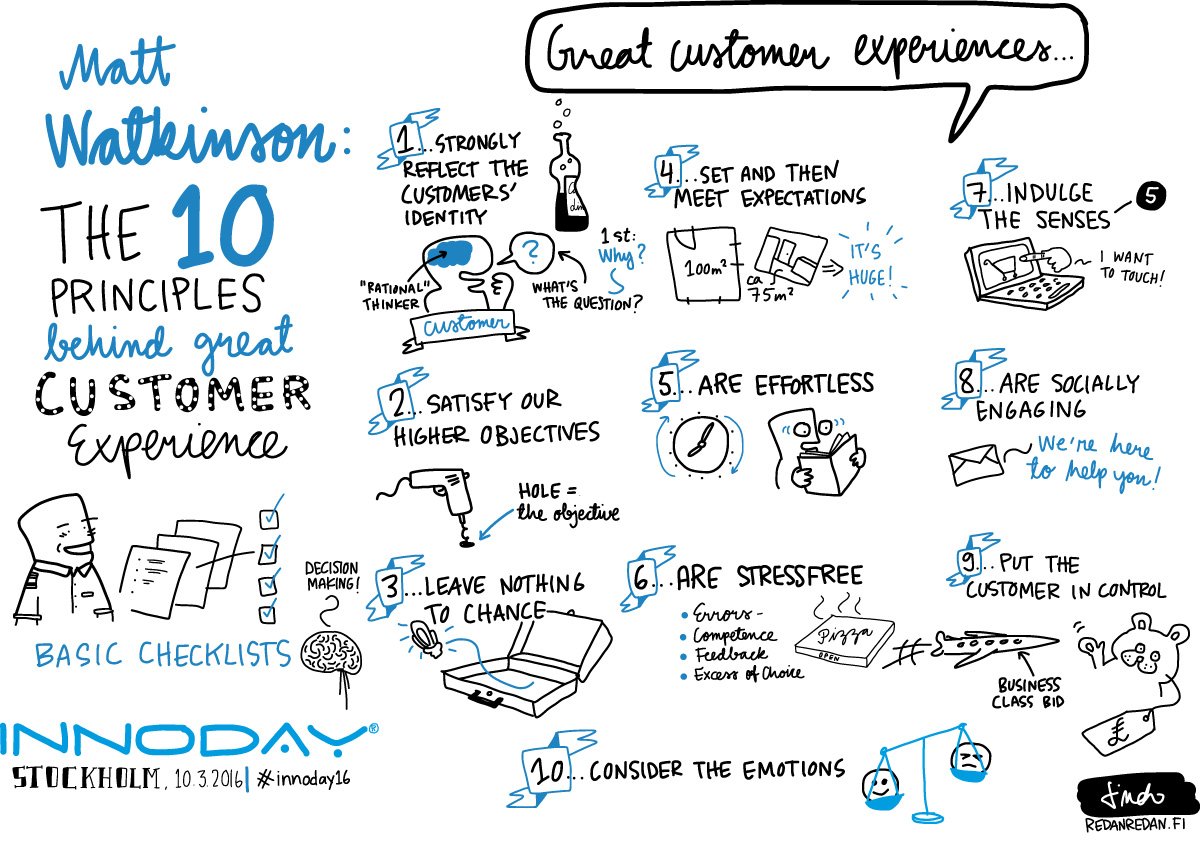 Matt
Watkinson:
THE 10
PRINCIPLES
behind great
CUSTOMER
Experience
DECISION
MAKING!
BASIC CHECKLISTS
INNODAY®
STOCKHOLM, 10.3.2016 | #innoday16
Great customer experiences...
1...STRONGLY
REFLECT THE
CUSTOMERS'
IDENTITY
"RATIONAL"
THINKER
?
1st:
Why?
WHAT'S
THE QUESTION?
customer
2...SATISFY OUR
HIGHER OBJECTIVES
HOLE =
the objective
3...LEAVE NOTHING
TO CHANCE
4...SET AND THEN
MEET EXPECTATIONS
100m²
ca
75m²
IT'S
HUGE!
5...ARE EFFORTLESS
6...ARE STRESSFREE
• Errors-
• Competence
• Feedback
• Excess of Choice
Pizza
OPEN
7...INDULGE
THE SENSES
5
I WANT
TO TOUCH!
8...ARE SOCIALLY
ENGAGING
We're here
to help you!
9...PUT THE
CUSTOMER IN CONTROL
BUSINESS
CLASS BID
£
10...CONSIDER THE EMOTIONS
REDANREDAN.FI